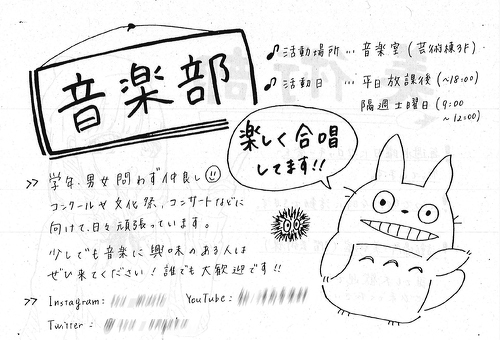 音楽部
♪活動場所…音楽室(芸術棟3F)
♪活動日 …平日放課後(~18:00)
隔週土曜日(9:00
~12:00)
楽しく合唱
してます!!
>> 学年、男女問わず仲良し
コンクールや文化祭、コンサートなどに
向けて、日々頑張っています。
少しでも音楽に興味のある人は
ぜひ来てください!誰でも大歓迎です!!
>> Instagram: YouTube:
Twitter: